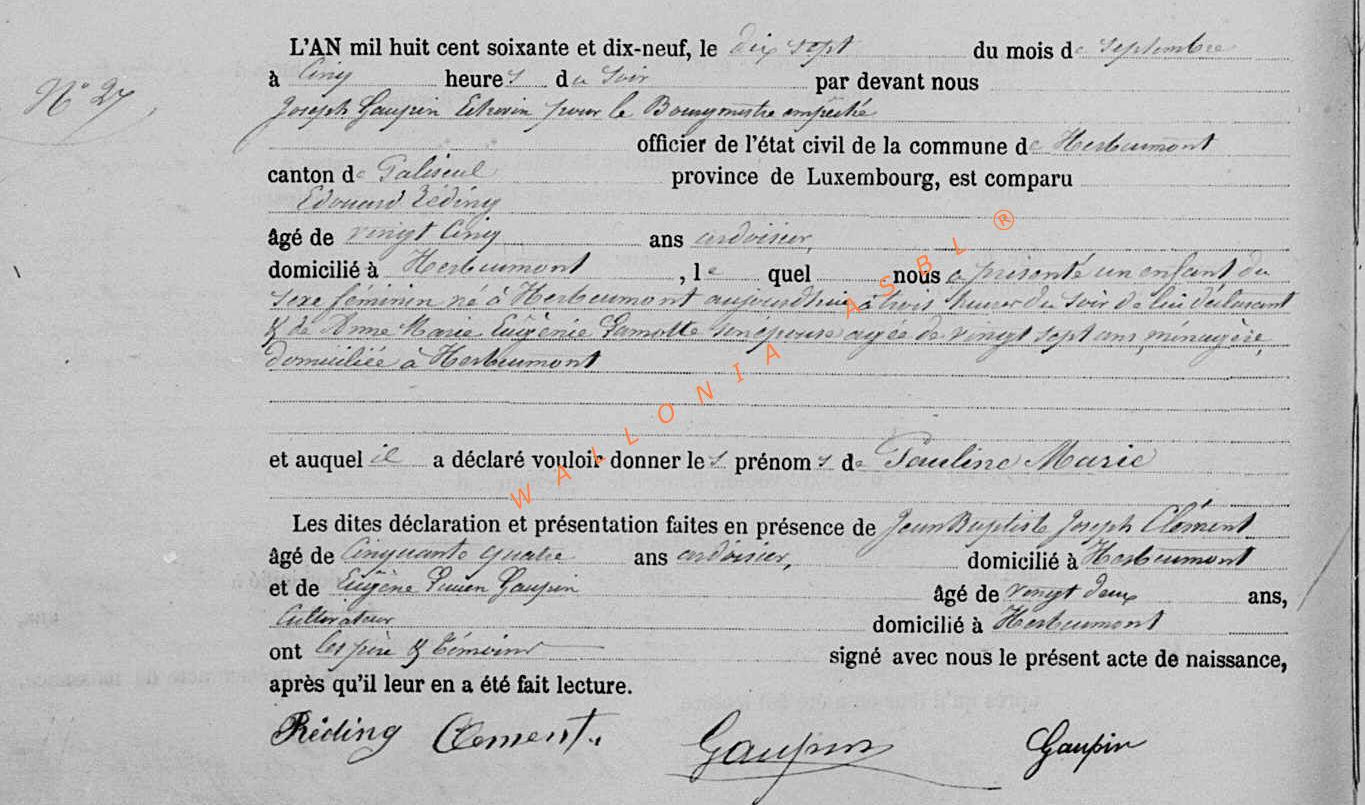 L'AN mil huit cent soixante et dix-neuf, le dix sept du mois de Septembre
N° 27
à Cinq heures du Soir par devant nous
Joseph Gaupin Echevin pour le Bourgmestre empêché
officier de l'état civil de la commune de Herbeumont
canton de Paliseul province de Luxembourg, est comparu
Edouard Réding
âgé de vingt Cinq ans ardoisier,
domicilié à Herbeumont, le quel nous a présenté un enfant du
sexe féminin né à Herbeumont aujourdhui à trois heures du Soir de lui déclarant
& de Anne Marie Eugènie Lamotte son épouse agée de vingt sept ans, ménagère,
domiciliée à Herbeumont
et auquel il a déclaré vouloir donner les prénoms de Pauline Marie
Les dites déclaration et présentation faites en présence de Jean Baptiste Joseph Clément
âgé de Cinquante quatre ans ardoisier, domicilié à Herbeumont
et de Eugène Lucien Gaupin âgé de vingt deux ans,
Cultivateur domicilié à Herbeumont
ont les père & témoins signé avec nous le présent acte de naissance,
après qu'il leur en a été fait lecture.
Réding Clement. Gaupin Gaupin
WALLONIA ASBL ®